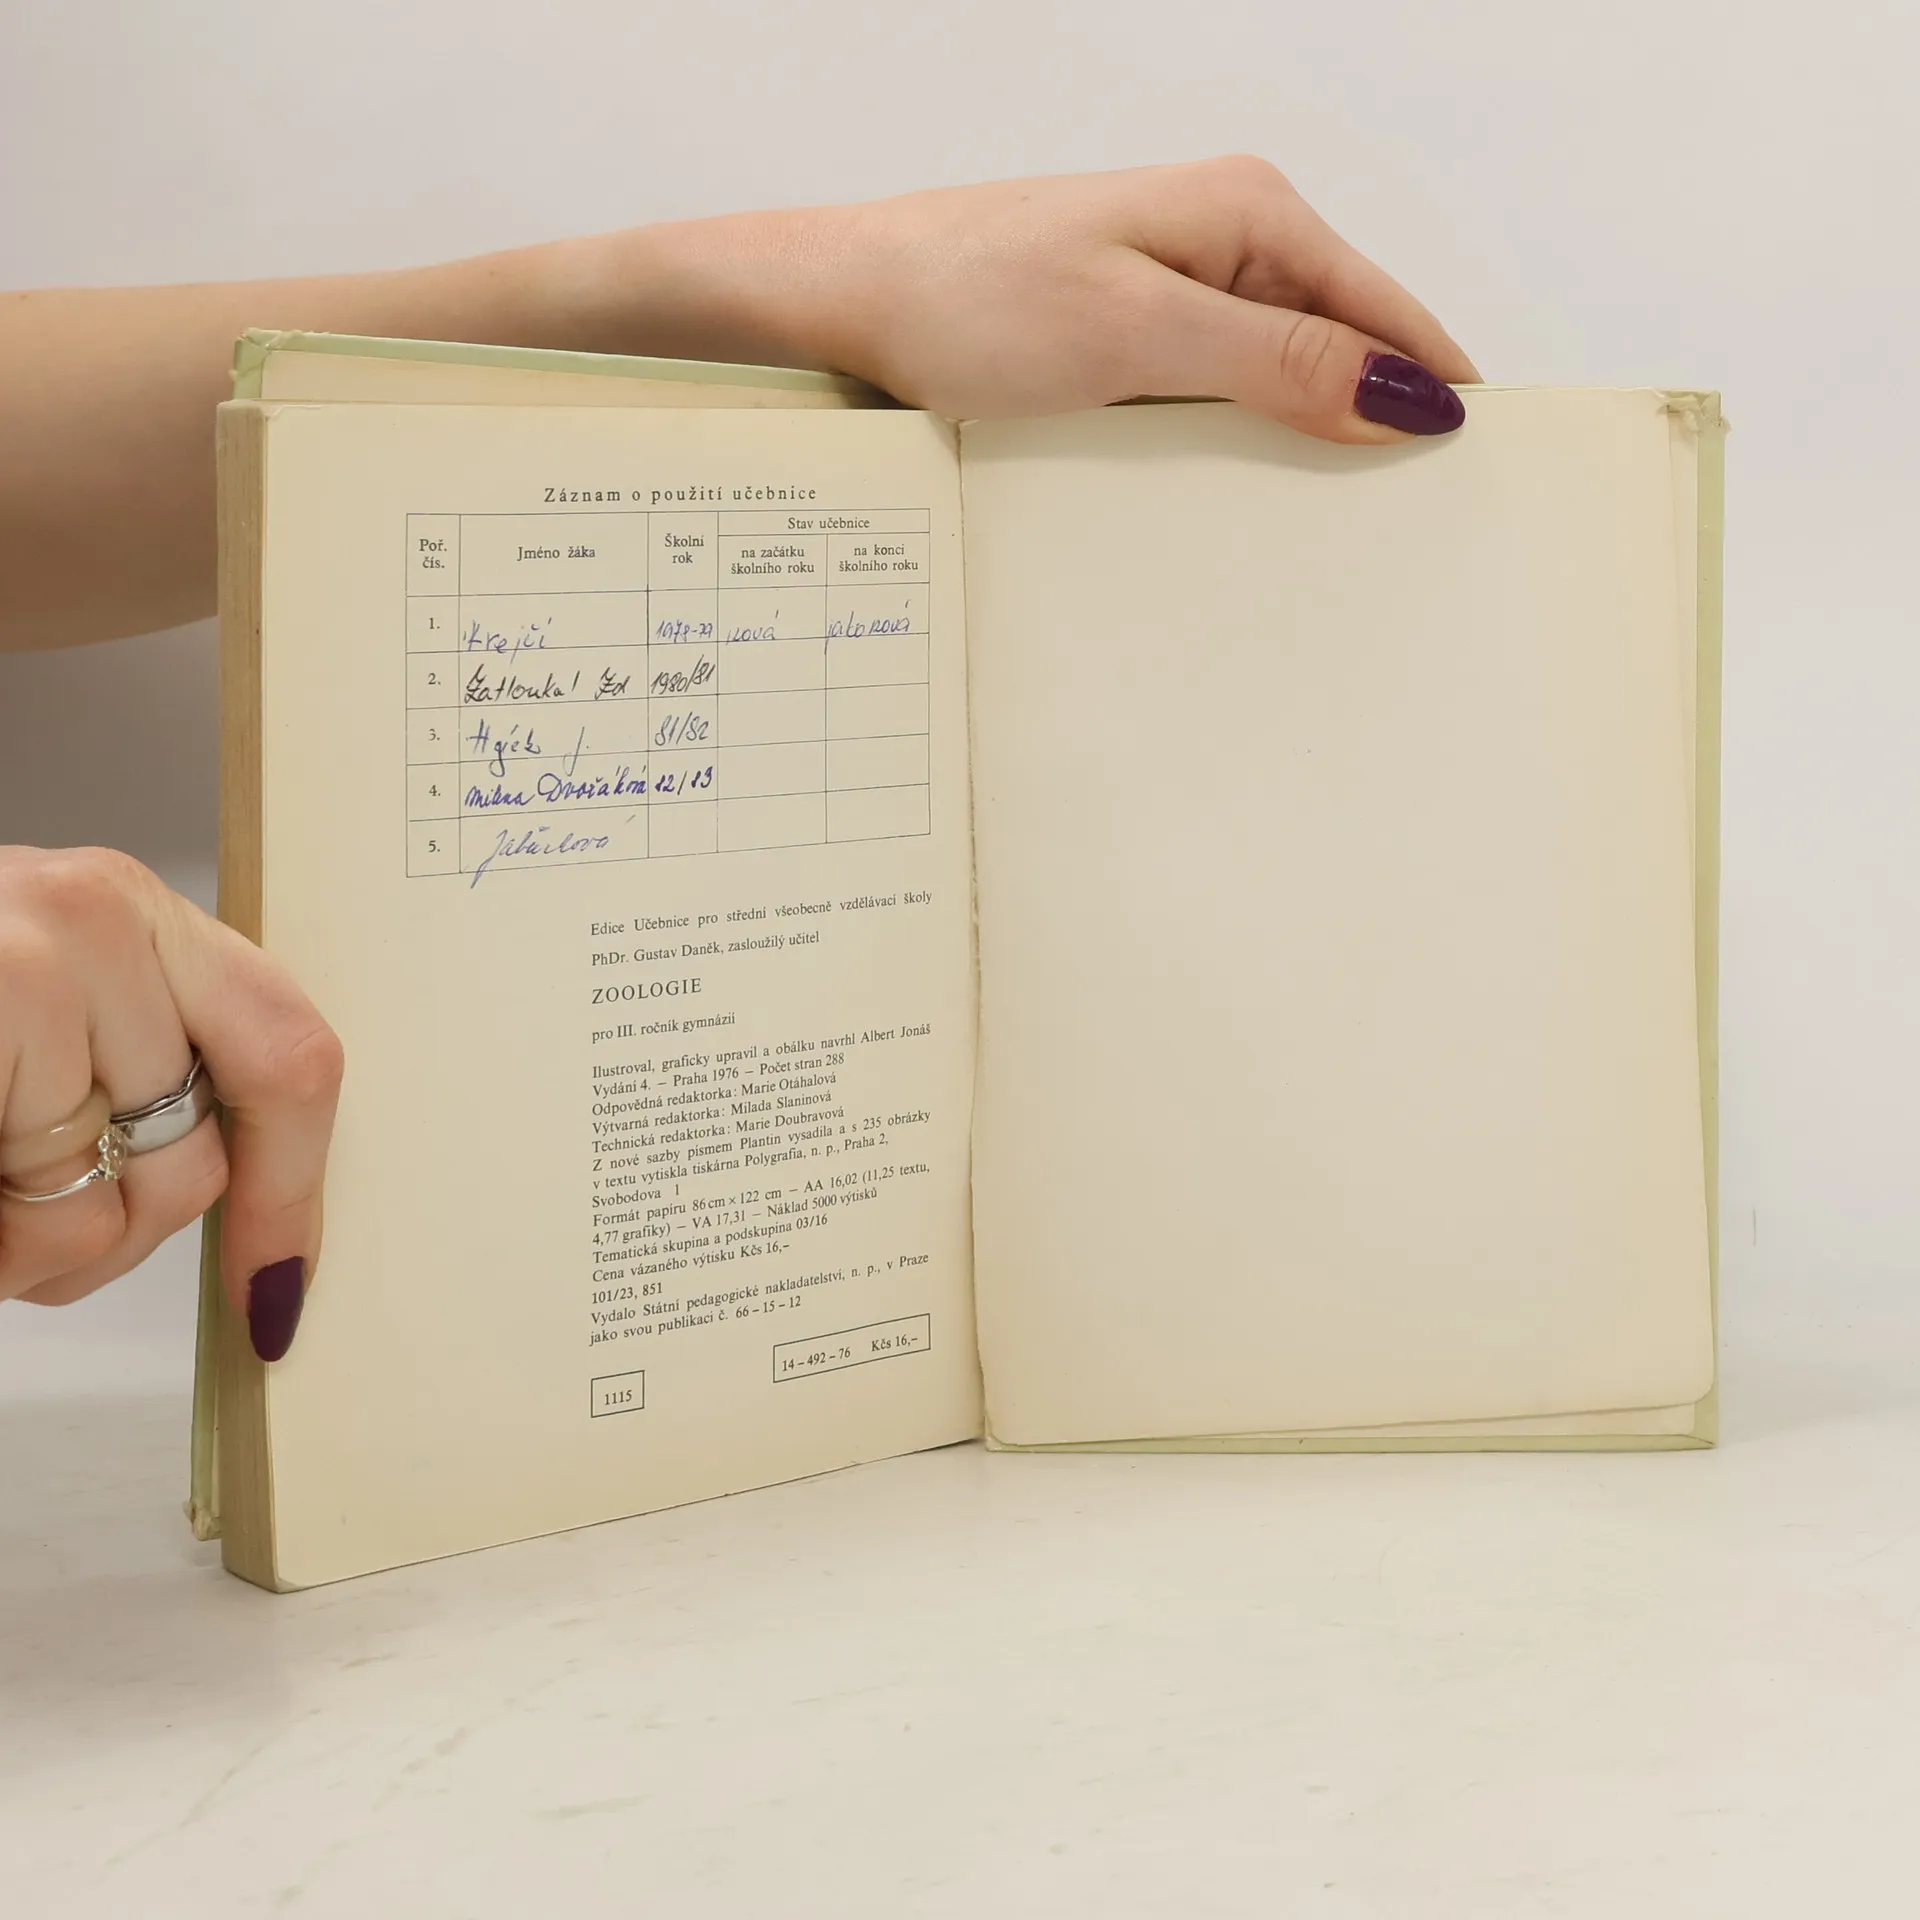 Záznam o použití učebnice
Poř. čís.
Jméno žáka
Školní rok
Stav učebnice
na začátku školního roku
na konci školního roku
1. Krejčí 1978-79 nová jako nová
2. Zatloukal Zd 1980/81
3. Hájek J. 81/82
4. Milena Dvořáková 82/83
5.
Edice Učebnice pro střední všeobecně vzdělávací školy
PhDr. Gustav Daněk, zasloužilý učitel
ZOOLOGIE
pro III. ročník gymnázií
Ilustroval, graficky upravil a obálku navrhl Albert Jonáš
Vydání 4. – Praha 1976 – Počet stran 288
Odpovědná redaktorka: Marie Otáhalová
Výtvarná redaktorka: Milada Slaninová
Technická redaktorka: Marie Doubravová
Z nové sazby písmem Plantin vysadila a s 235 obrázky
v textu vytiskla tiskárna Polygrafia, n. p., Praha 2,
Svobodova 1
Formát papíru 86 cm × 122 cm – AA 16,02 (11,25 textu,
4,77 grafiky) – VA 17,31 – Náklad 5000 výtisků
Tematická skupina a podskupina 03/16
Cena vázaného výtisku Kčs 16,–
101/23, 851
Vydalo Státní pedagogické nakladatelství, n. p., v Praze
jako svou publikaci č. 66 – 15 – 12
14 – 492 – 76 Kčs 16,–
1115